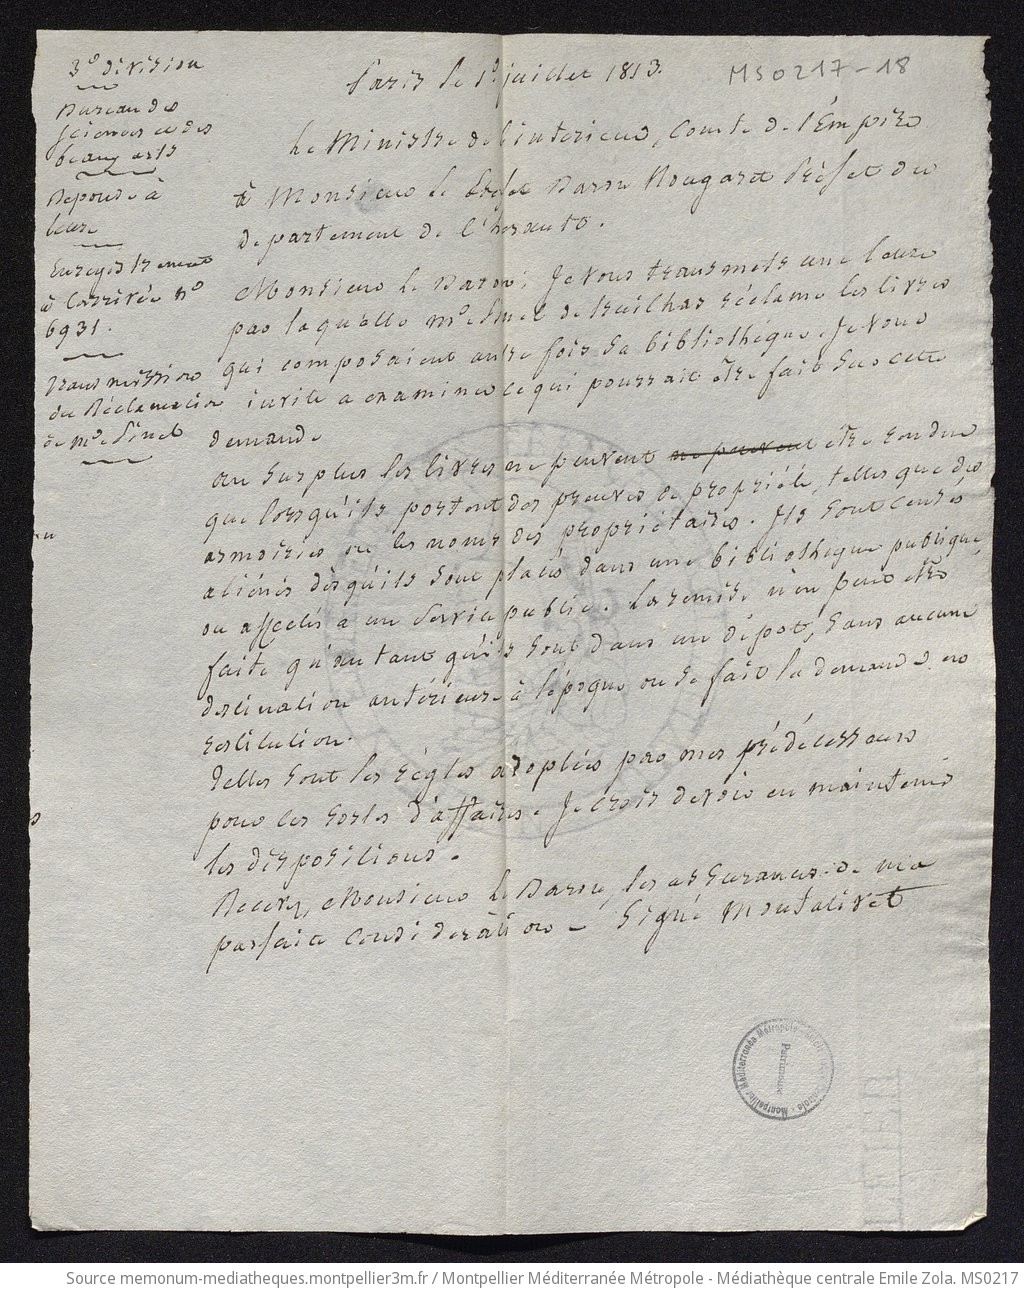 3e division
Bureau des
sciences et des
beaux arts
Réponse à
lettre
Enregistrement
à l'arrivée n°
6931.
transmission
du Réclamation
de Mde Pinel
MS0217-18
Paris le 1r juillet 1813.
Le Ministre de l'intérieur, Comte de l'Empire
à Monsieur le Baron Nougaret Préfet du
département de l'hérault.
Monsieur le Baron, Je vous transmets une lettre
par laquelle Mde Pinel de truilhas réclame les livres
qui composaient autre fois sa bibliothèque. Je vous
invite a examiner ce qui pourrait être fait sur cette
demande
au surplus les livres ne peuvent ne peuvent être rendus
que lorsqu'ils portent des preuves de propriété, telles que des
armoiries ou les noms des propriétaires. Ils sont censés
aliénés dès qu'ils sont placés dans une bibliothèque publique,
ou affectés a un service public. La remise n'en peut être
faite qu'autant qu'ils sont dans un dépot, sans aucune
destination antérieure à l'époque ou se fait la demande en
restitution.
telles sont les règles adoptées par mes prédécesseurs
pour ces sortes d'affaires. Je crois devoir en maintenir
les dispositions.
Recevez, Monsieur le Baron, les assurances de ma
parfaite considération - Signé Montalivet
Montpellier Méditerranée Métropole
Patrimoine
Source memonum-mediatheques.montpellier3m.fr / Montpellier Méditerranée Métropole - Médiathèque centrale Emile Zola. MS0217